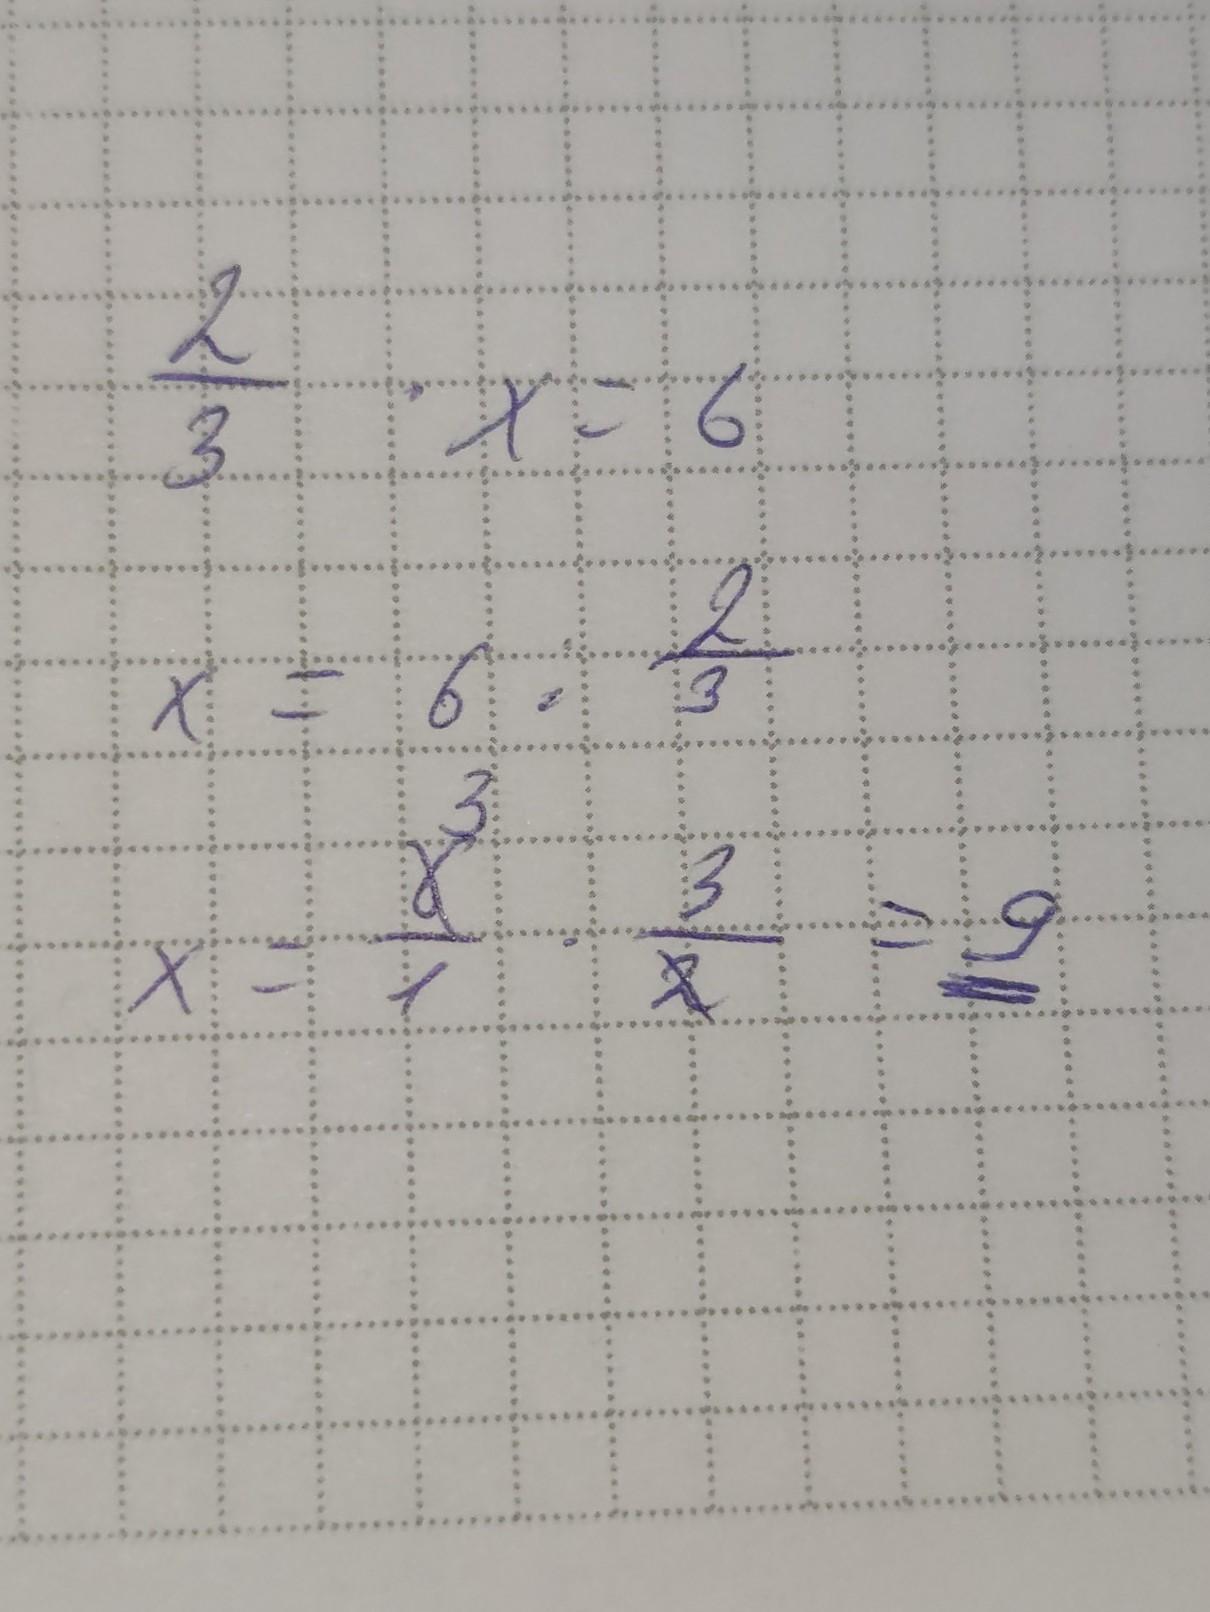 2/3 · x = 6
x = 6 : 2/3
3
x = 6/1 · 3/2 = 9